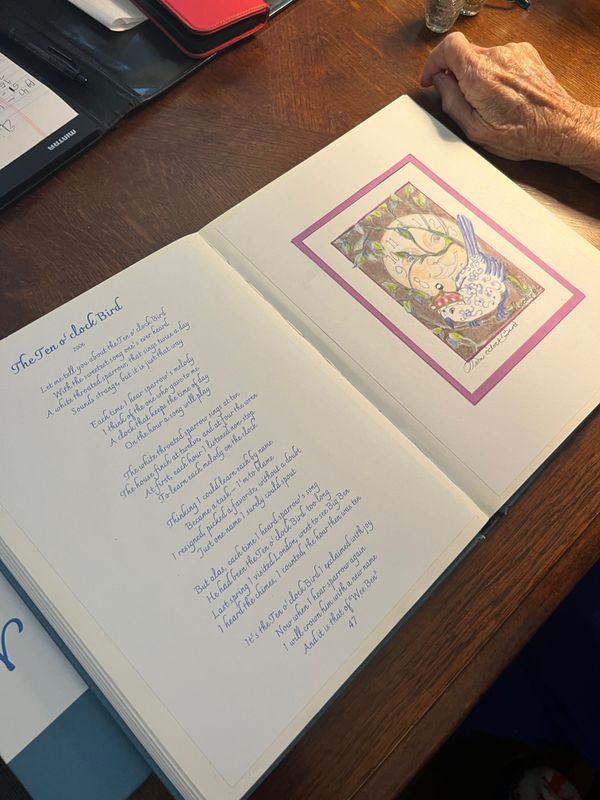 The Ten o'clock Bird
2006
Let me tell you about the Ten o'clock Bird
With the sweetest song one's ever heard
A white throated sparrow that sings twice a day
Sounds strange but it is just that way
Each time I hear sparrow's melody
I think of the one who gave to me
A clock that keeps the time of day
On the hour a song will play
The white throated sparrow sings at ten
The house finch at twelve, and at four the wren
At first, each hour I listened non-stop
To learn each melody on the clock
Thinking I could learn each by name
Became a task--I'm to blame
I resigned, picked a favorite without a doubt
Just one name I surely could spout
But alas, each time I heard sparrow's song
He had been the Ten o'clock Bird too long
Last spring I visited London, went to see Big Ben
I heard the chimes, I counted, the hour then was ten
It's the Ten o'clock Bird I exclaimed with joy
Now when I hear sparrow again
I will crown him with a new name
And it is that of "Wee Ben"
47
o'clock Bird
11
10
9
MINTRA